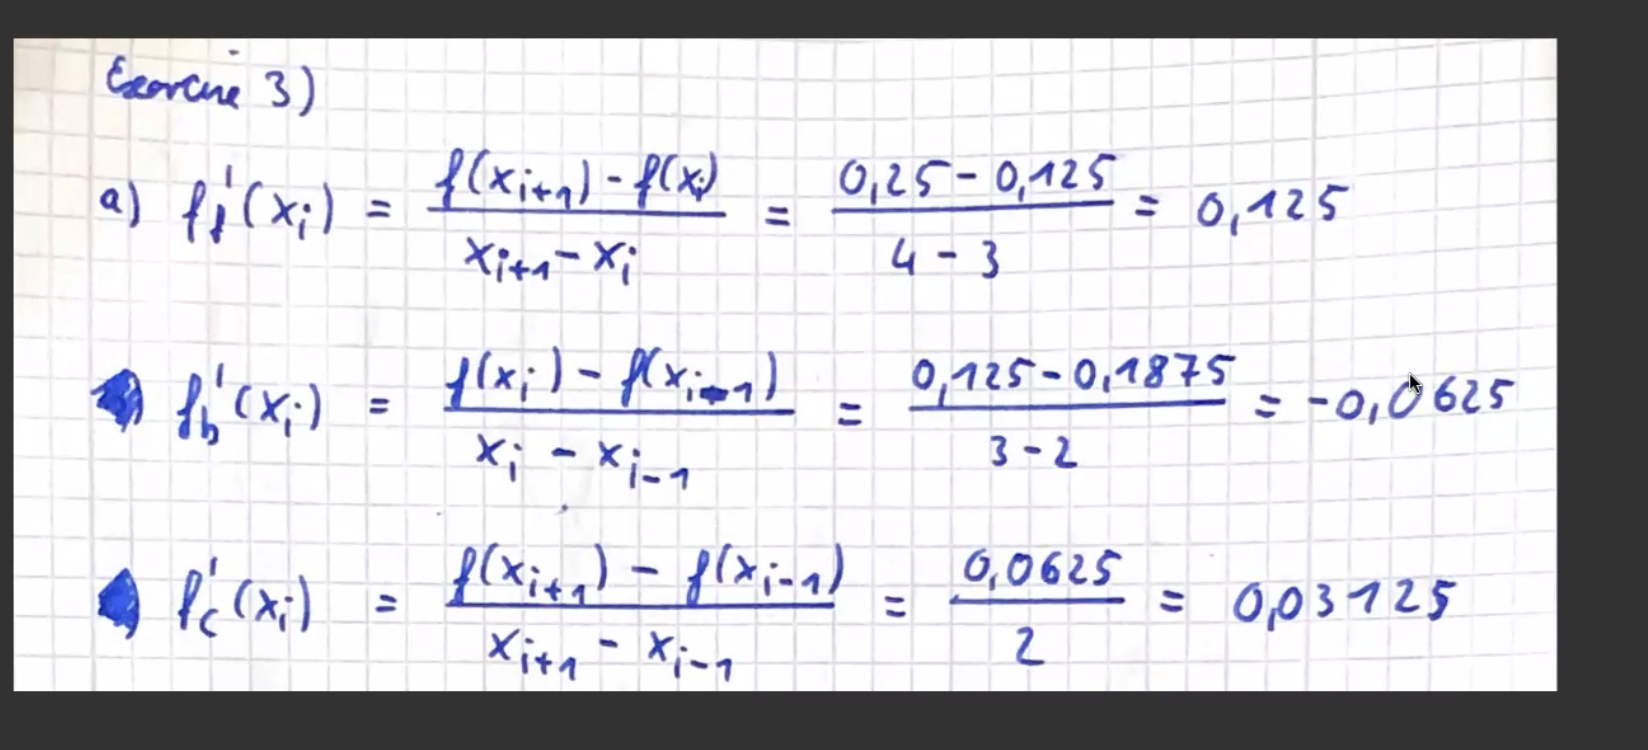 Exercise 3)
a) f_f'(x_i) = (f(x_{i+1}) - f(x_i)) / (x_{i+1} - x_i) = (0,25 - 0,125) / (4 - 3) = 0,125
f_b'(x_i) = (f(x_i) - f(x_{i-1})) / (x_i - x_{i-1}) = (0,125 - 0,1875) / (3 - 2) = -0,0625
f_c'(x_i) = (f(x_{i+1}) - f(x_{i-1})) / (x_{i+1} - x_{i-1}) = 0,0625 / 2 = 0,03125